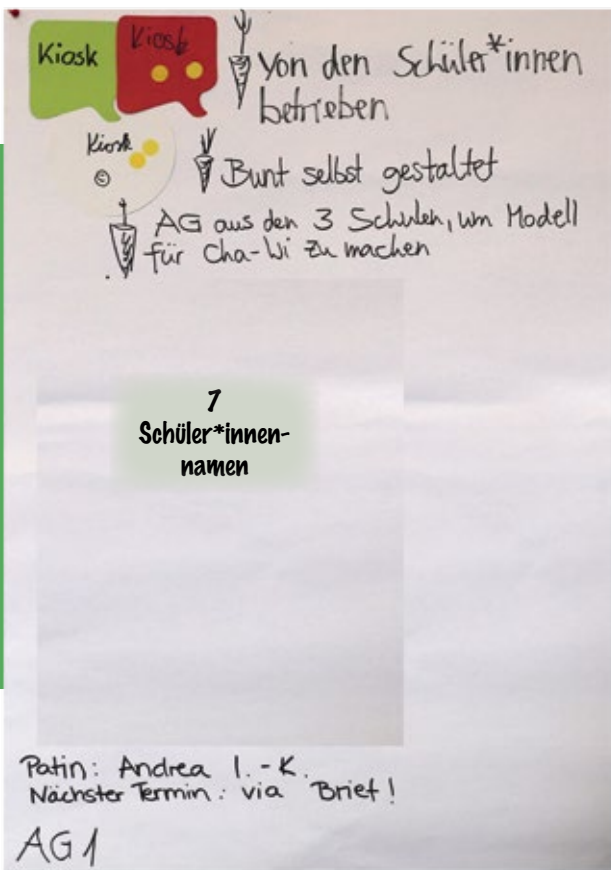 Kiosk
Kiosk
Von den Schüler*innen
betrieben
Kiosk
Bunt selbst gestaltet
AG aus den 3 Schulen, um Modell
für Cha-Wi zu machen
7
Schüler*innen-
namen
Patin: Andrea I.-K.
Nächster Termin: via Brief!
AG1